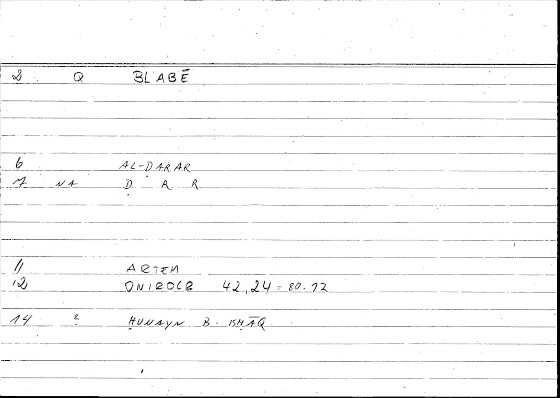 2 Q BLABĒ
6 AL-ḌARAR
7 NA Ḍ R R
11 ARTEM
12 ONIROCR 42,24 = 80.12
14 2 ḤUNAYN B. ISḤĀQ